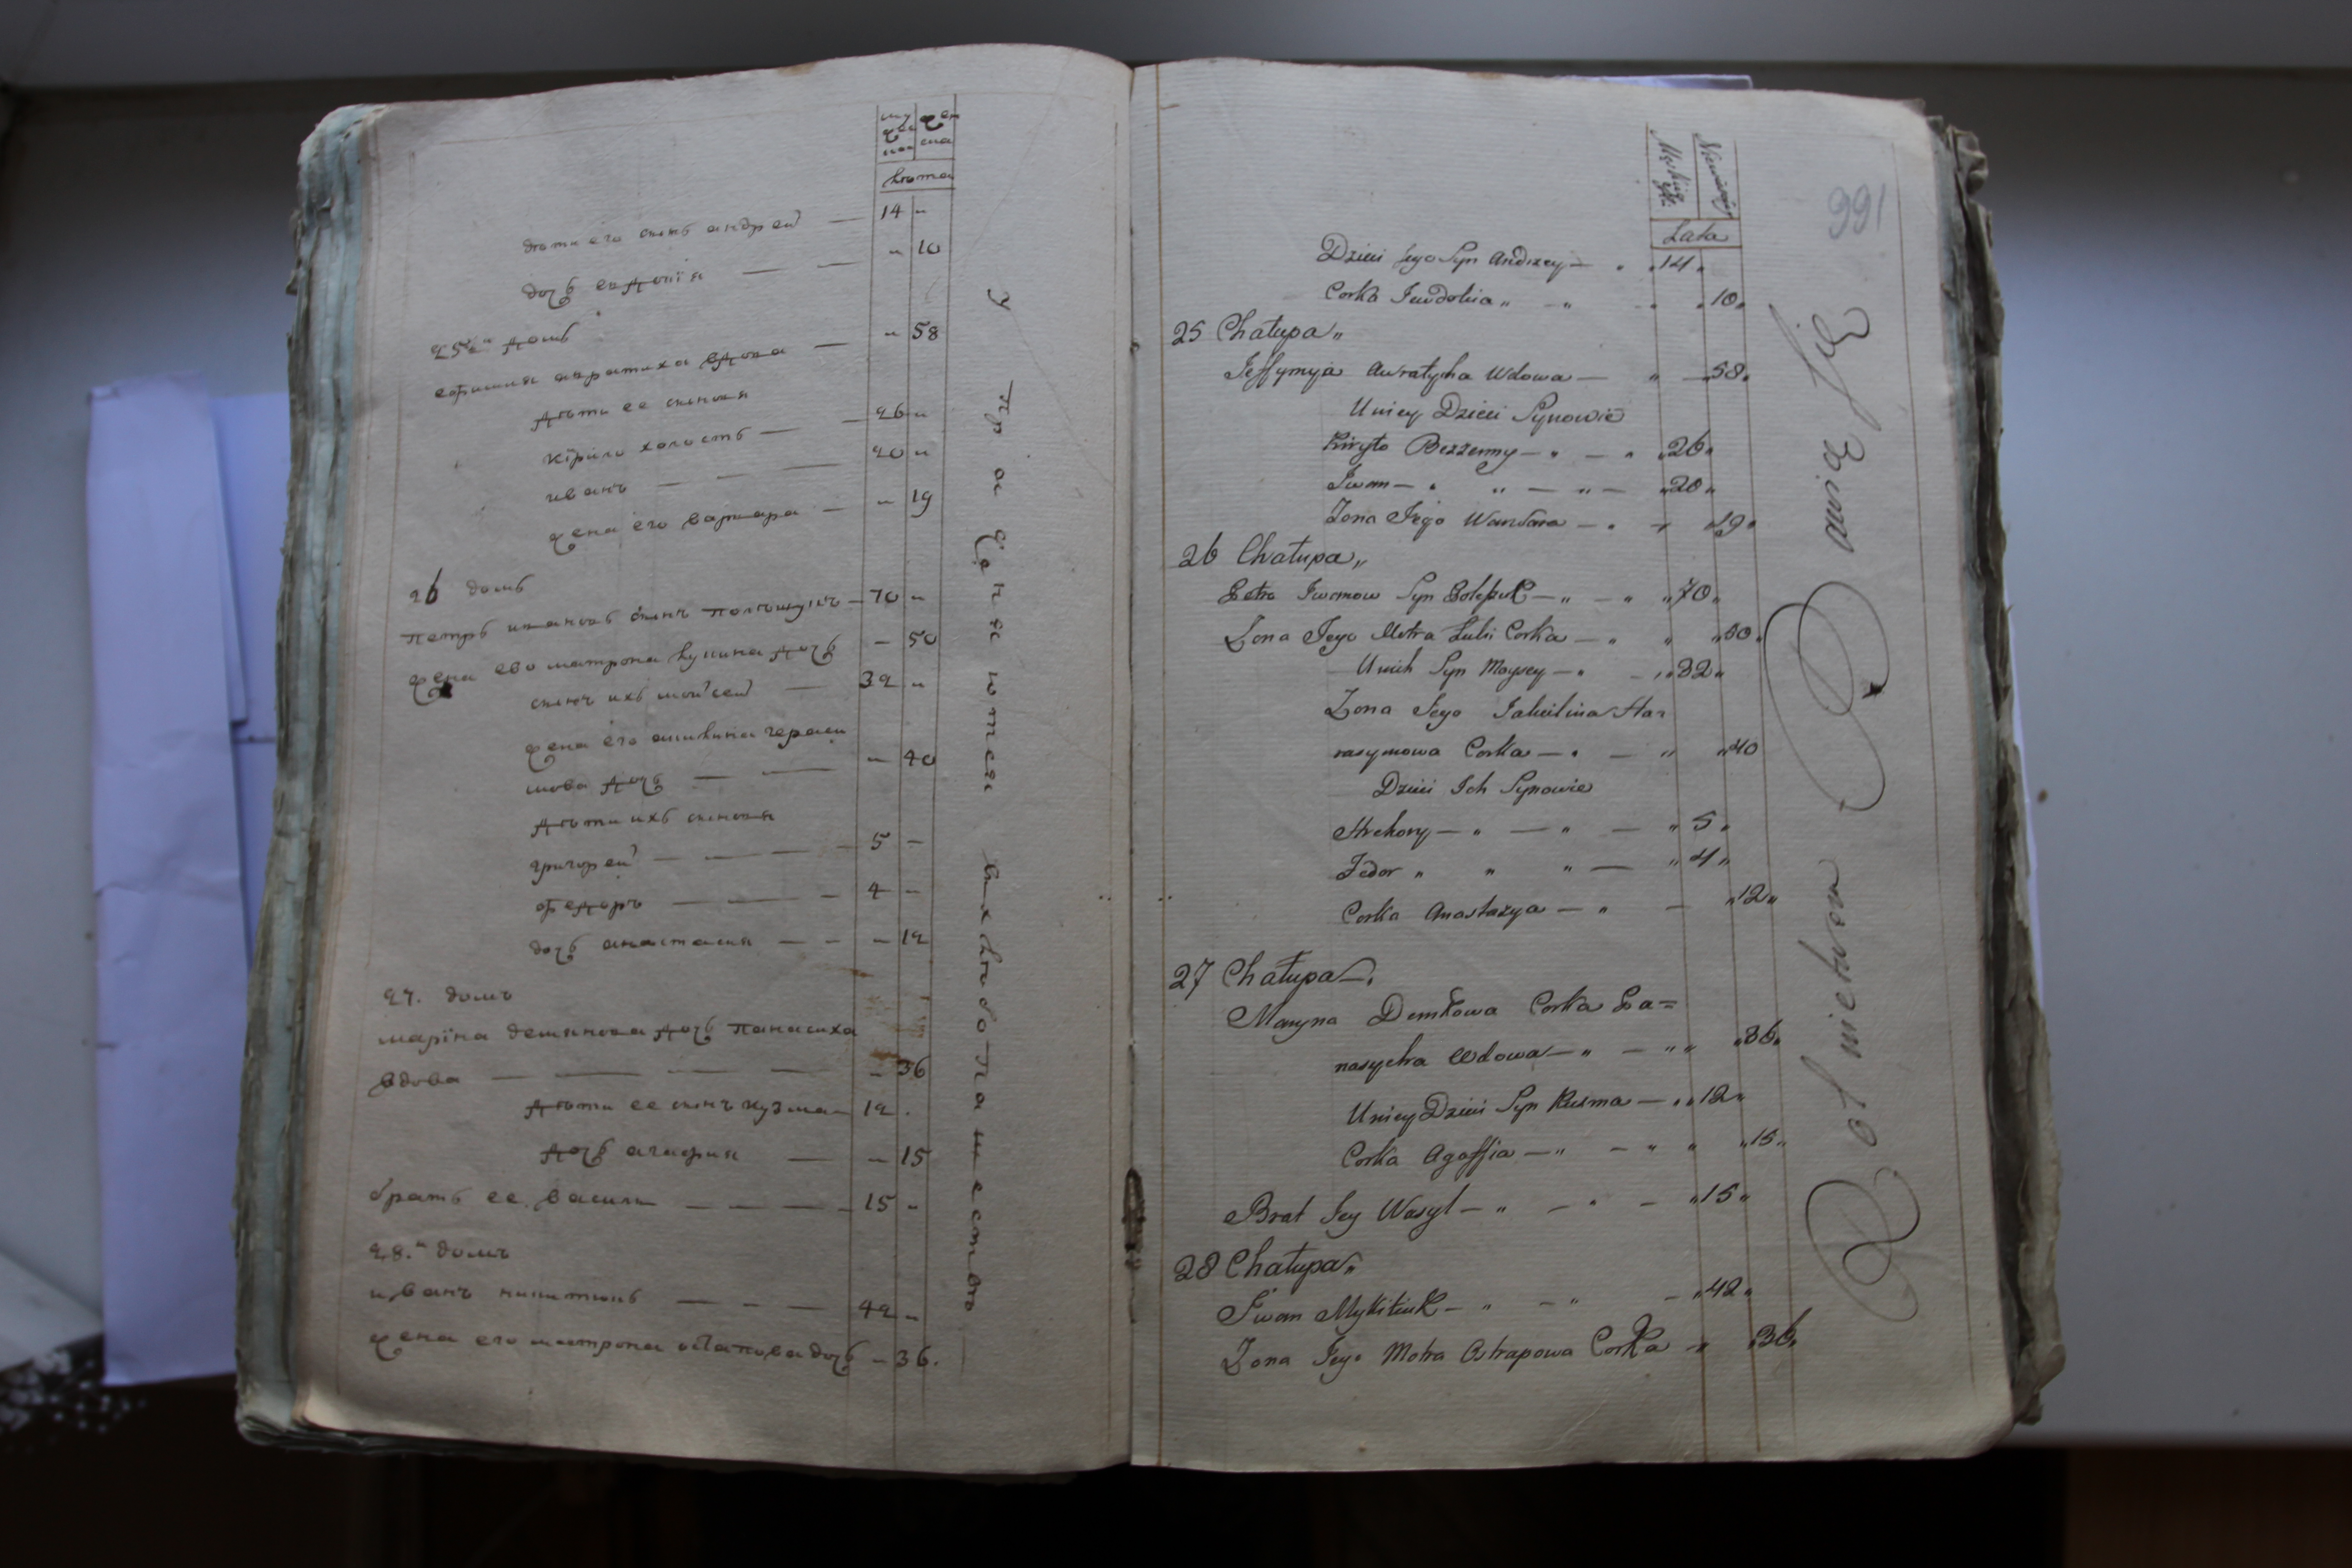 лѣта
дѣти его сынъ андрей — 14 "
дочь евдокія — — " 10
25й домъ
ефимия авратиха вдова — " 58
дѣти ее сыновя
кірило холостъ — — 26 "
иванъ — — — 20 "
жена его варвара — " 19
26 домъ
петръ ивановъ сынъ — 70 "
жена ево матрона луцина дочь — 50
сынъ ихъ мойсей — 32 "
жена его акилина гераси
мова дочь — — " 40
дѣти ихъ сыновя
григорей — — — 5 —
федоръ — — — 4 —
дочь анастасия — — — 12
27. домъ
маріна демянова дочь панасиха
вдова — — — — — 36
дѣти ее сынъ кузма — 12 .
дочь агафия — — 15
братъ ее василь — — — — 15 "
28." домъ
иванъ никитюкъ — — — 42 "
жена его матрона остапова дочь — 36.
у праженютея
991
Męskiey
Niewiesci
Lata
Dzieci Jego Syn Andrzey — " 14 "
Corka Jewdokia " — " " 10 "
25 Chałupa "
Jeffymya Awratycha Wdowa — " — 58 "
U niey Dzieci Synowie
Kiryło Bezżenny — " — " " 26 "
Iwan — " " — " — " 20 "
Żona Jego Warwara — " " 19 "
26 Chałupa "
Petro Iwanow Syn — " — " " 70 "
Żona Jego Motra Corka — " " " 50 "
U nich Syn Moysey — " — " 32 "
Żona Jego Jakilina Har
rasymowa Corka — " — " " 40
Dzieci Ich Synowie
Hrehory — " — " — " 5 "
Fedor " " " — " 4 "
Corka Anastazya — " — " 12 "
27 Chałupa — "
Maryna Demkowa Corka Pa=
nasycha Wdowa — " — " " " 36 "
U niey Dzieci Syn Kuzma — " " 12 "
Corka Agaffia — " — " " " 15 "
Brat Jey Wasyl — " — " — " 15 "
28 Chałupa "
Iwan Mykitiuk — " — " — " 42 "
Żona Jego Motra Ostapowa Corka — " " 36 "